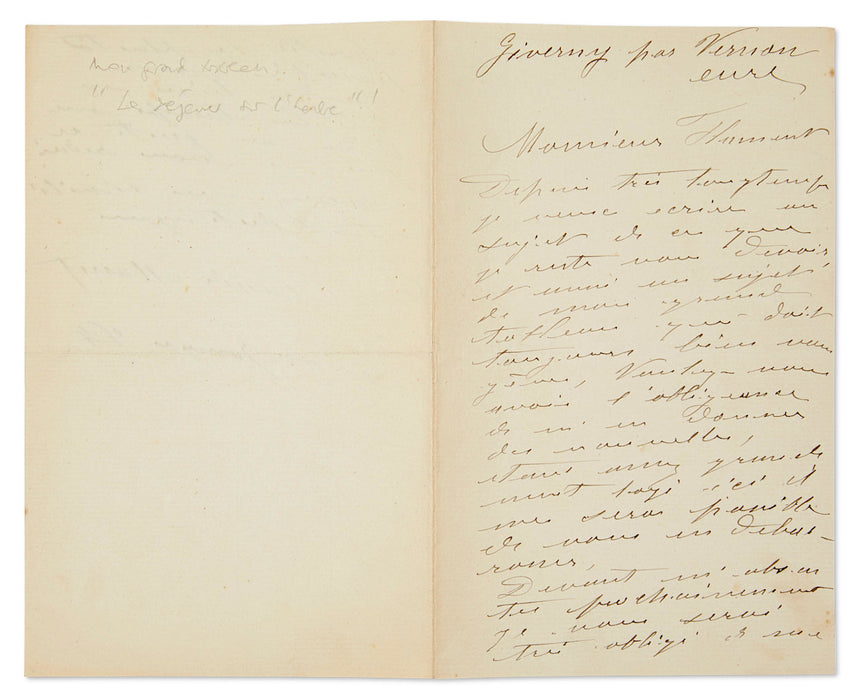 mon grand tableau.
"Le déjeuner sur l'herbe"!
Giverny par Vernon
eure
Monsieur Flament
Depuis très longtemps
je veux ecrire au
sujet de ce que
je reste vous devoir
et aussi au sujet
de mon grand
tableau qui doit
toujours bien vous
gêner, Voulez-vous
avoir l'obligeance
de m'en donner
des nouvelles,
étant assez grande-
ment logé ici il
me sera possible
de vous en débar-
rasser,
Devant m'absen
ter prochainement
je vous serai
très obligé de me